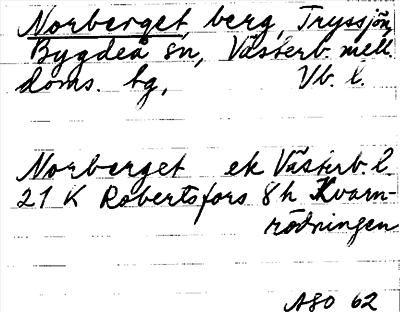 Norberget, berg, Tryssjön,
Bygdeå sn, Västerb. mell.
doms. tg, Vb. l.
Norberget ek Västerb. l
21 K Robertsfors 8h Kvarn-
rödningen
ASO 62